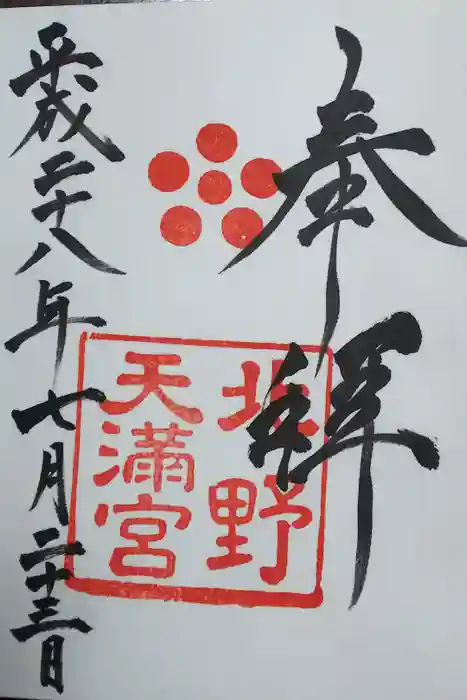 奉拝
北野
天満宮
平成二十八年七月二十三日